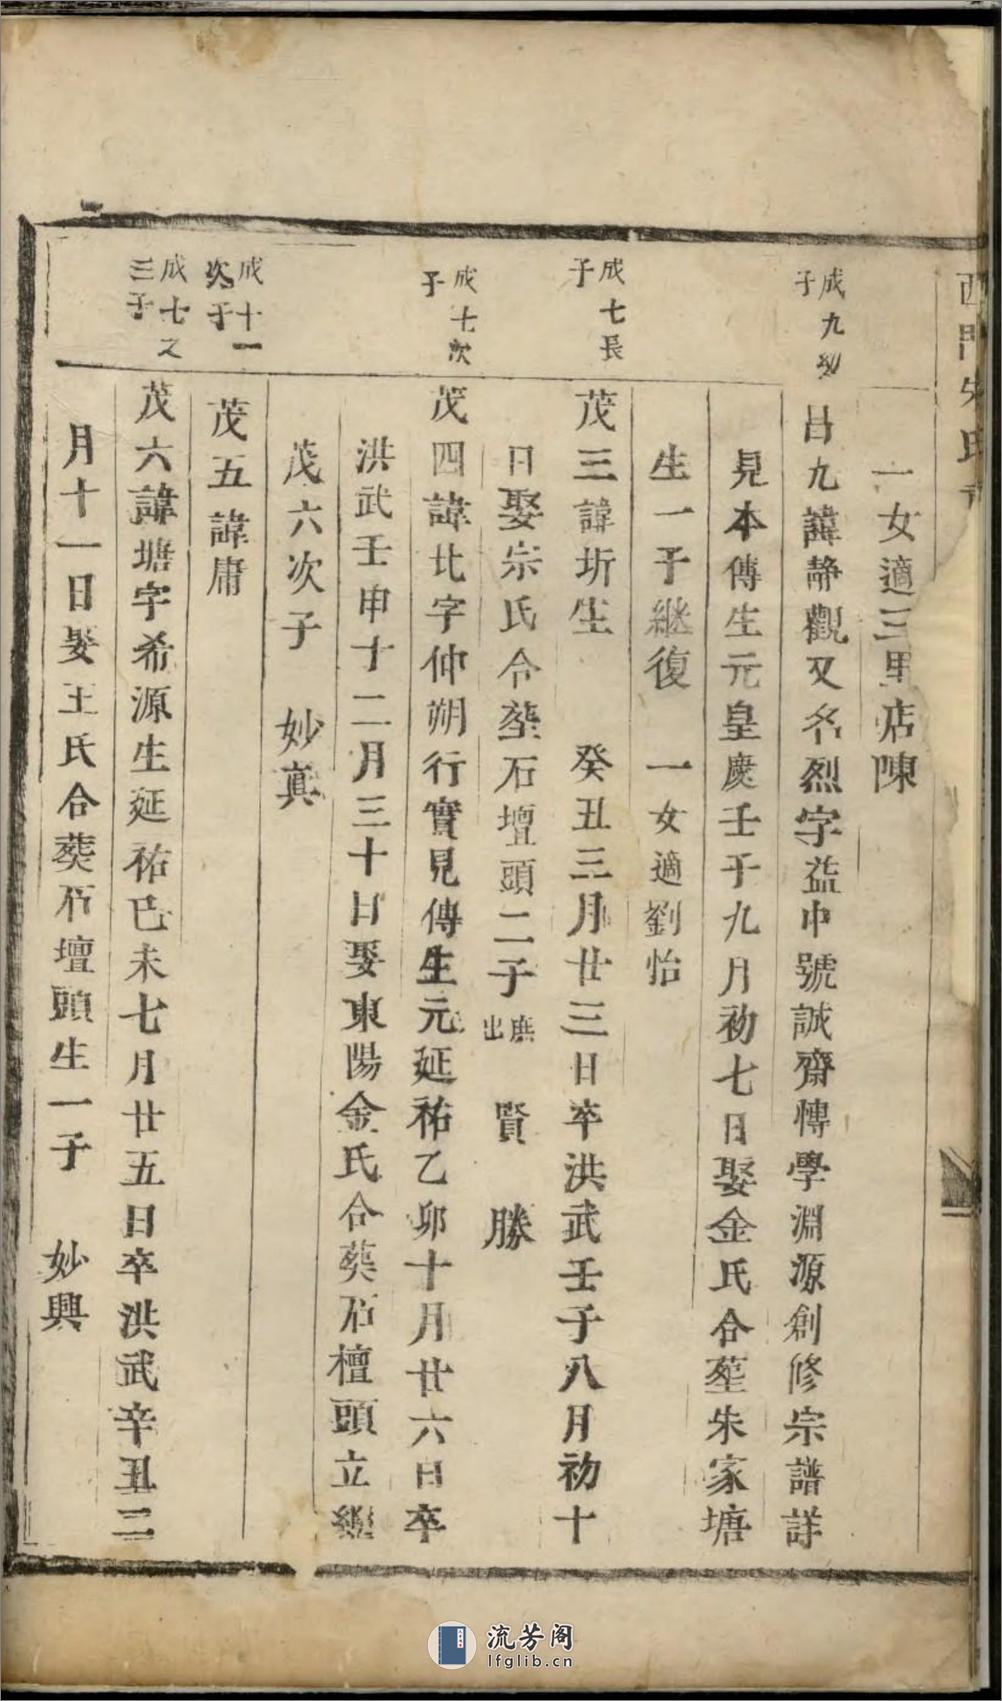 西門朱氏
一女適三里店陳
成九幼子
昌九諱靜觀又名烈字益中號誠齋博學淵源創修宗譜詳
見本傳生元皇慶壬子九月初七日娶金氏合塟朱家塘
生一子継復 一女適劉怡
成七長子
茂三諱圻生 癸丑三月廿三日卒洪武壬子八月初十
日娶宗氏合塟石壇頭二子庶出 賢 勝
成七次子
茂四諱北字仲朔行實見傳生元延祐乙卯十月廿六日卒
洪武壬申十二月三十日娶東陽金氏合葬石檀頭立繼
茂六次子 妙真
成十一次子
茂五諱庸
成七之三子
茂六諱塘字希源生延祐己未七月廿五日卒洪武辛丑二
月十一日娶王氏合葬石壇頭生一子 妙興
流芳阁
lfglib.cn